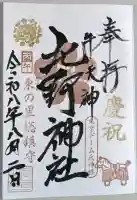 奉拝
慶祝
牛天神
北野神社
令和八年八月二日